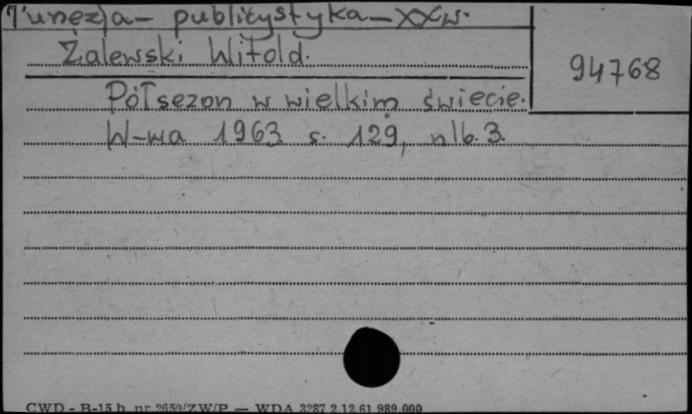 Tunezja – publicystyka – XXw.
Żalewski Witold.
94768
Półsezon w wielkim świecie.
W-wa 1963 s. 129, nlb. 3.
CWD - B-15 b nr 2659/ZW/P — WDA 3287 2.12.61 989.000